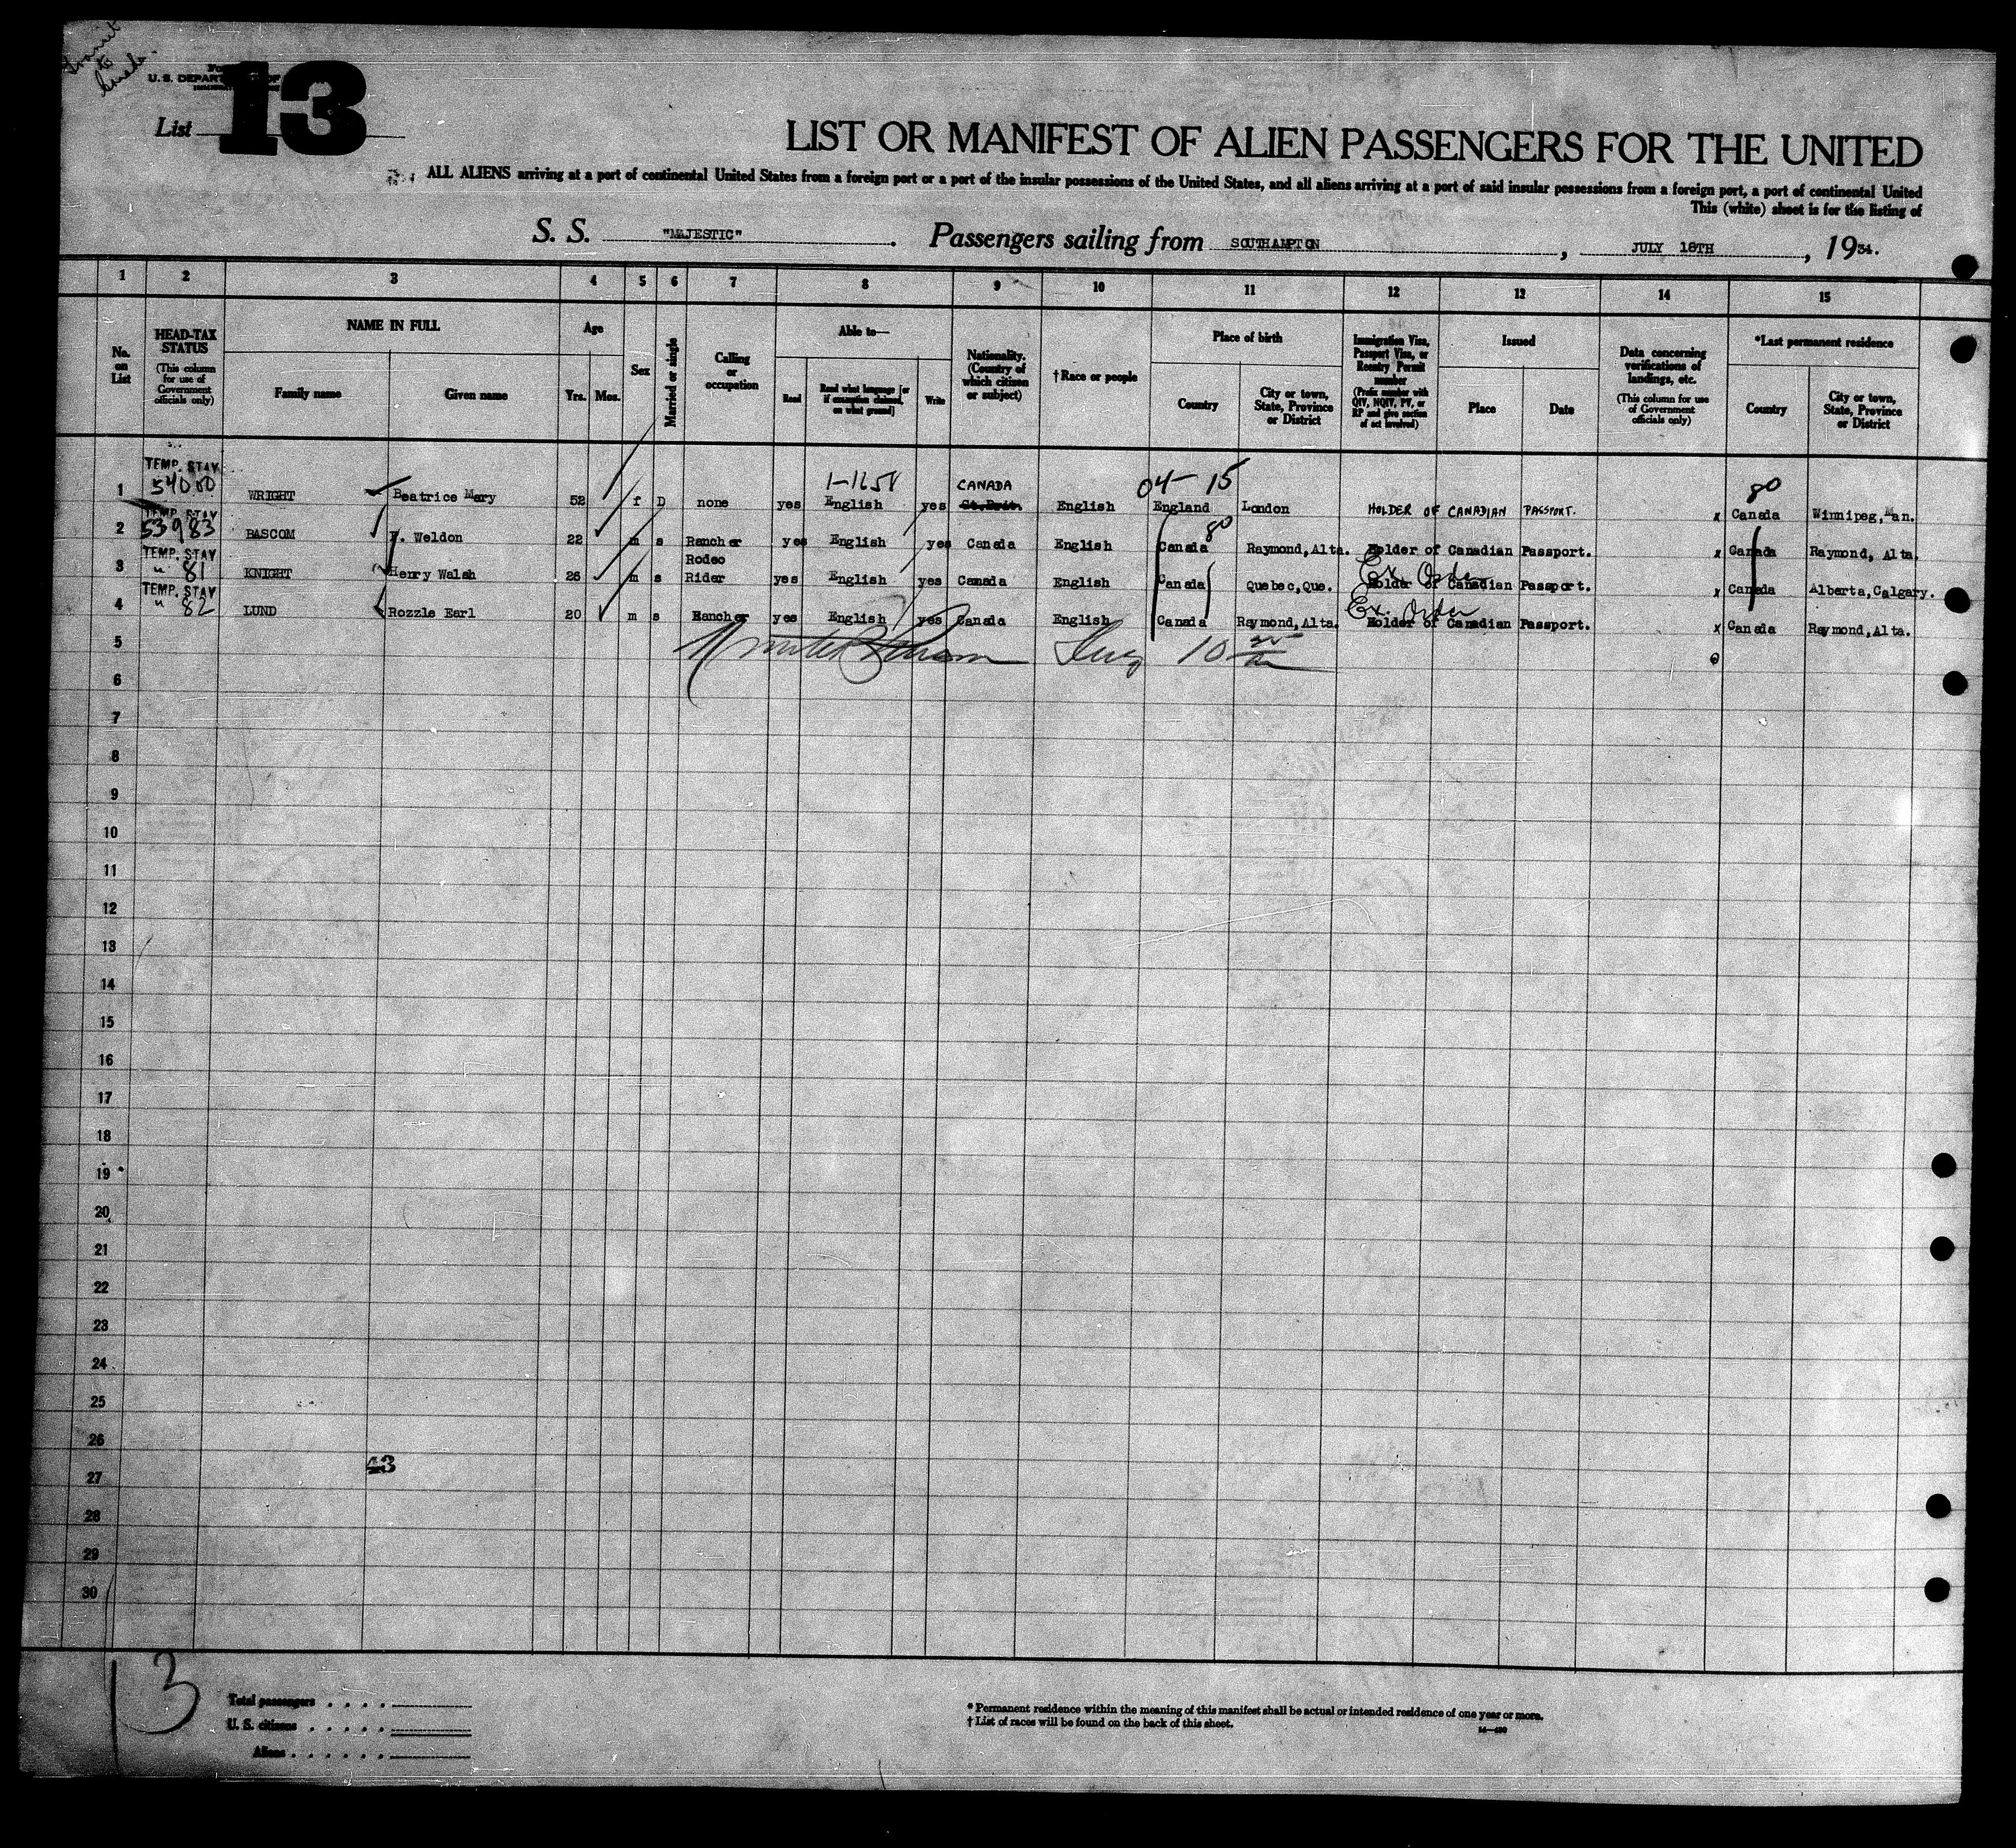 Transit
to
U. S. DEPARTMENT OF
List 13
LIST OR MANIFEST OF ALIEN PASSENGERS FOR THE UNITED
ALL ALIENS arriving at a port of continental United States from a foreign port or a port of the insular possessions of the United States, and all aliens arriving at a port of said insular possessions from a foreign port, a port of continental United
This (white) sheet is for the listing of
S. S. "MAJESTIC". Passengers sailing from SOUTHAMPTON, JULY 18TH, 1934.
1 2 3 4 5 6 7 8 9 10 11 12 13 14 15
No. on List
HEAD-TAX STATUS (This column for use of Government officials only)
NAME IN FULL
Family name Given name
Age
Yrs. Mos.
Sex
Married or single
Calling or occupation
Able to—
Read Read what language [or if exemption claimed, on what ground] Write
Nationality. (Country of which citizen or subject)
†Race or people
Place of birth
Country City or town, State, Province or District
Immigration Visa, Passport Visa, or Reentry Permit number (Prefix number with QIV, NQIV, PV, or RP and give section of act involved)
Issued
Place Date
Data concerning verifications of landings, etc. (This column for use of Government officials only)
*Last permanent residence
Country City or town, State, Province or District
1 TEMP. STAY 54000 WRIGHT Beatrice Mary 52 f D none yes 1-1658 English yes CANADA Gt.Brit. English 04-15 England London HOLDER OF CANADIAN PASSPORT. x 80 Canada Winnipeg, Man.
2 TEMP. STAY 53983 BASCOM F. Weldon 22 m s Rancher yes English yes Canada English 80 Canada Raymond, Alta. Holder of Canadian Passport. x Canada Raymond, Alta.
3 TEMP. STAY " 81 KNIGHT Henry Walsh 26 m s Rodeo Rider yes English yes Canada English Canada Quebec, Que. Ex. Order Holder of Canadian Passport. x Canada Alberta, Calgary.
4 TEMP. STAY " 82 LUND Rozzle Earl 20 m s Rancher yes English yes Canada English Canada Raymond, Alta. Ex. Order Holder of Canadian Passport. x Canada Raymond, Alta.
5
6
7
8
9
10
11
12
13
14
15
16
17
18
19
20
21
22
23
24
25
26
43
27
28
29
30
13
Total passengers . . . .
U. S. citizens . . . . .
Aliens . . . . . .
* Permanent residence within the meaning of this manifest shall be actual or intended residence of one year or more.
† List of races will be found on the back of this sheet.